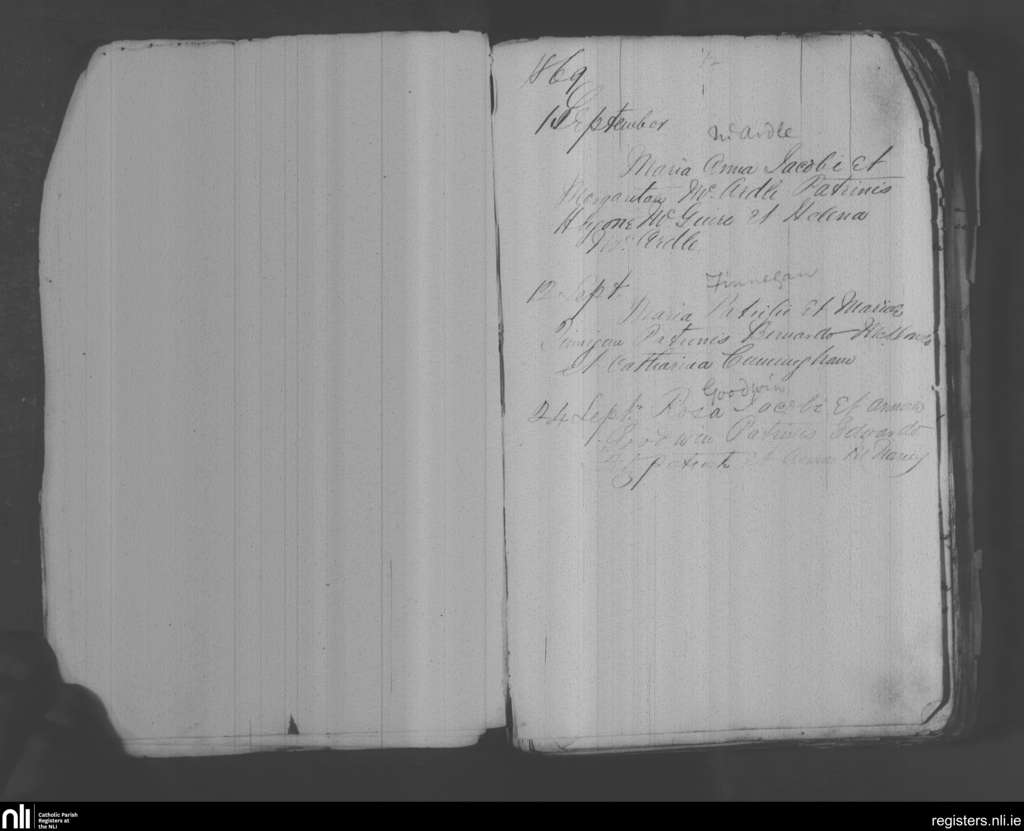 1869
September
McArdle
Maria Anna Jacobi et
Mc Ardle Patrinis
Mc Guire et Helena
Mc Ardle
12 Sept.
Finnegan
Maria Patricii et Mariae
Finigan Patrinis Bernardo
et Catharina Cunningham
Goodwin
24 Sept. Rosa Jacobi et Annae
Goodwin Patrinis Edwardo
et Anna
nli
Catholic Parish
Registers at
the NLI
registers.nli.ie